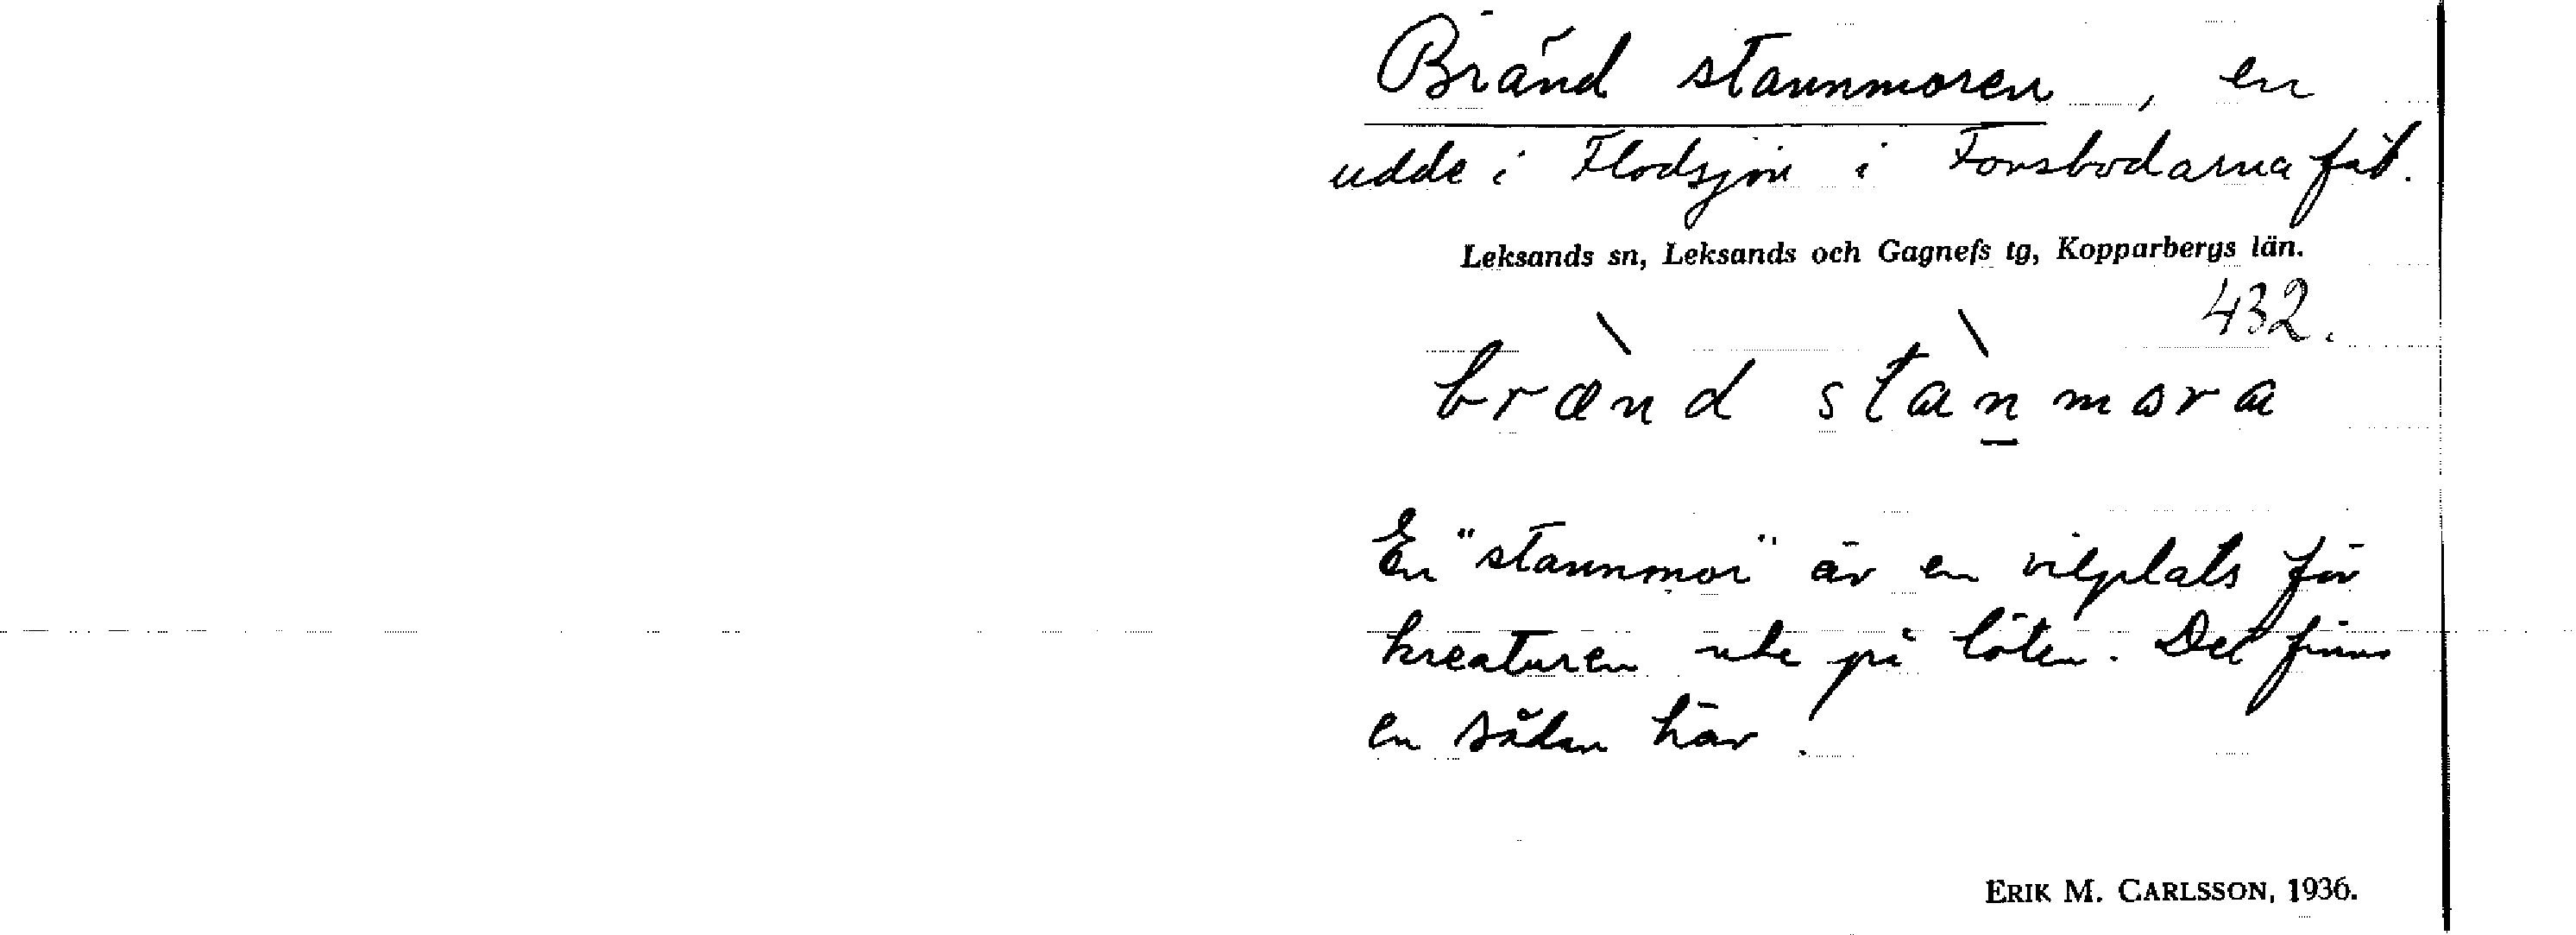 Bränd stannmoren, en
udde i Flodsjön i Forsbodarna fäb.
Leksands sn, Leksands och Gagnefs tg, Kopparbergs län.
432.
brænd stan̲mora
En "stannmor" är en vilplats för
kreaturen ute på löten. Det finns
en sådan här.
ERIK M. CARLSSON, 1936.